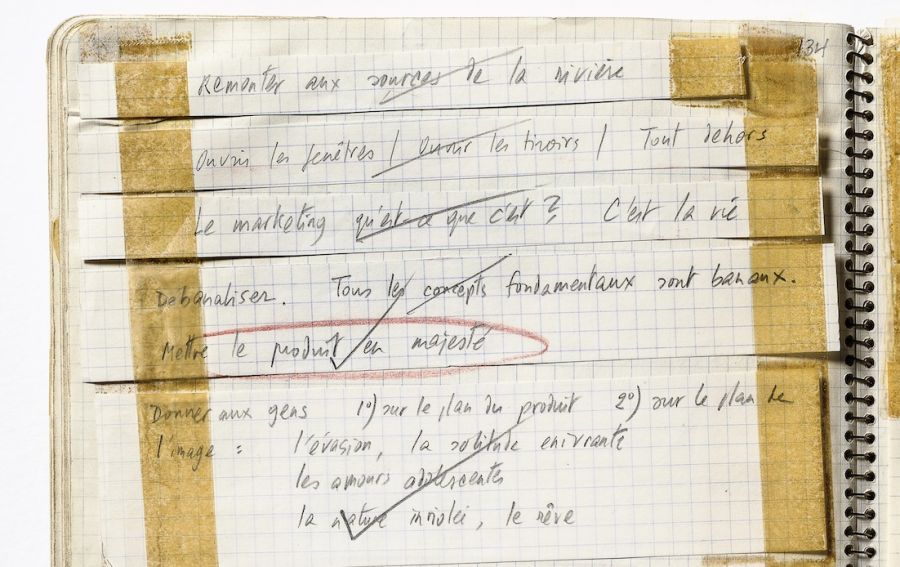 134
Remonter aux sources de la rivière
Ouvrir les fenêtres / Ouvrir les tiroirs / Tout dehors
Le marketing qu'est-ce que c'est ? C'est la vie
Débanaliser. Tous les concepts fondamentaux sont banaux.
Mettre le produit en majesté
Donner aux gens 1º) sur le plan du produit 2º) sur le plan de
l'image : l'évasion, la solitude enivrante
les amours adolescentes
la nature inviolée, le rêve